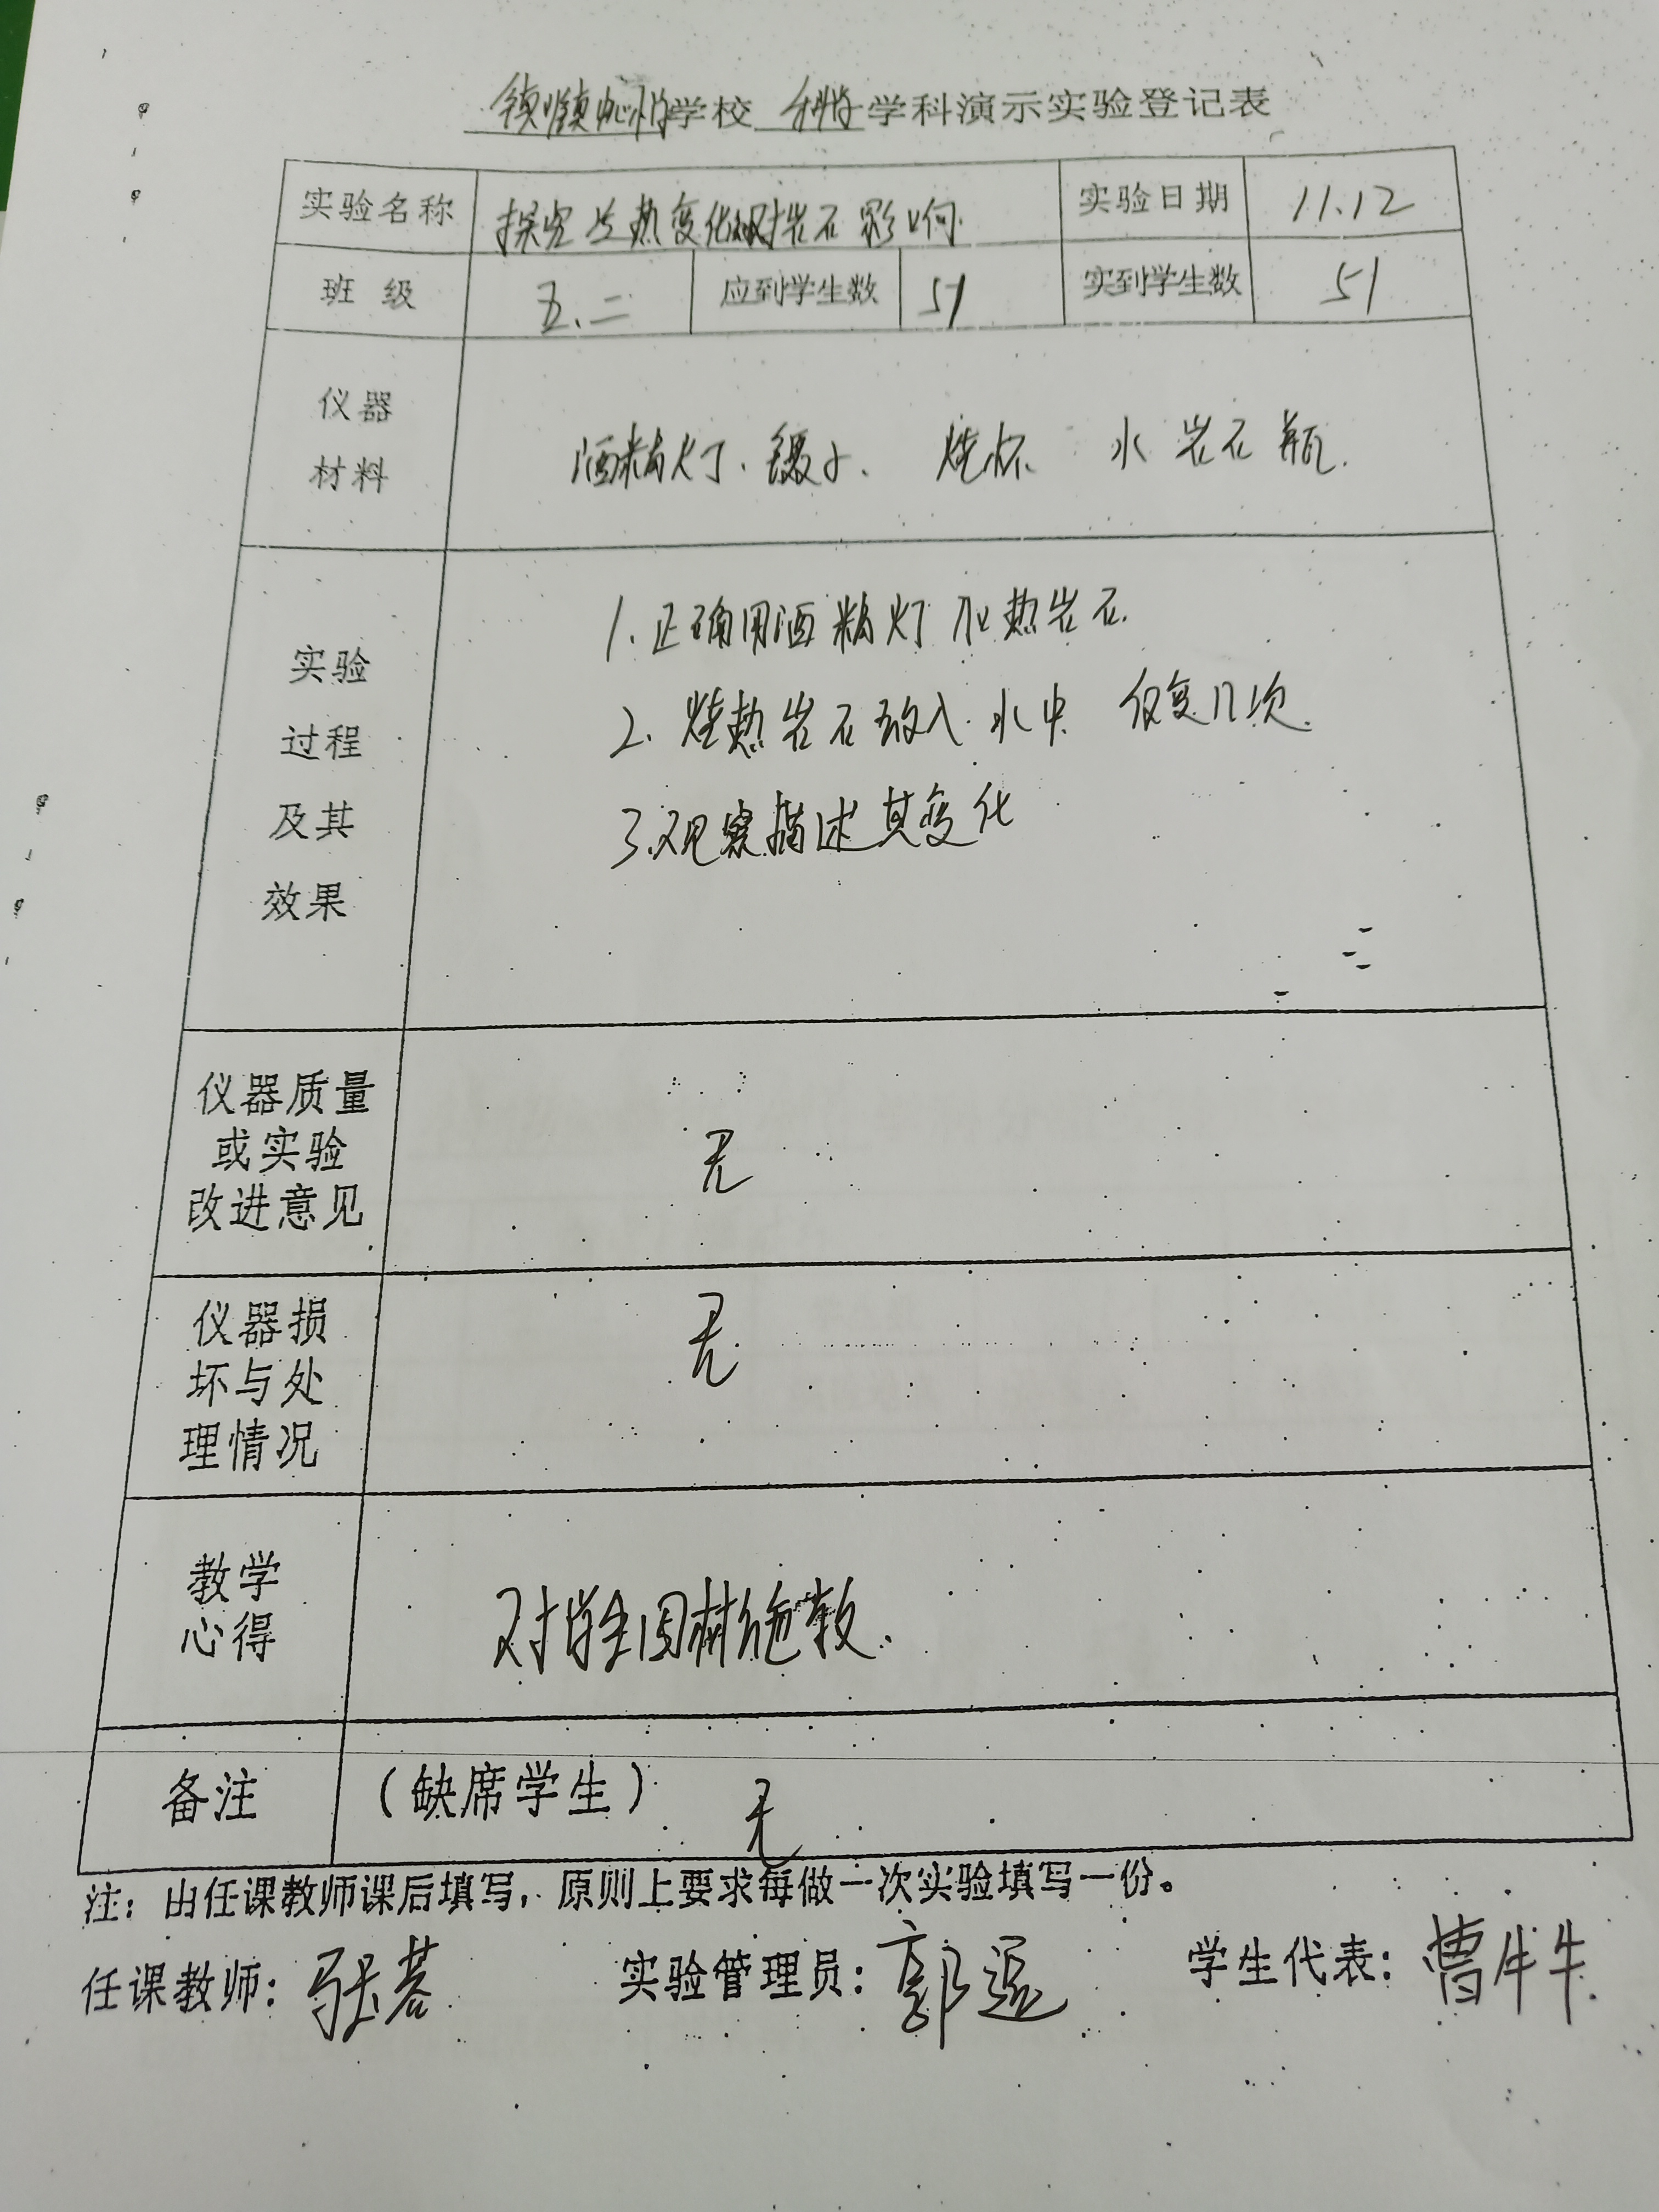 学校 科学 学科演示实验登记表
实验名称 探究冷热变化对岩石影响 实验日期 11.12
班级 五.二 应到学生数 51 实到学生数 51
仪器
材料
酒精灯、镊子、 烧杯 水 岩石 瓶.
实验
过程
及其
效果
1.正确用酒精灯加热岩石.
2.烧热岩石放入水中 反复几次.
3.观察描述其变化
仪器质量
或实验
改进意见
无
仪器损
坏与处
理情况
无
教学
心得
对学生因材施教.
备注 (缺席学生) 无
注：由任课教师课后填写，原则上要求每做一次实验填写一份。
任课教师： 实验管理员：郭 学生代表：曹牛牛